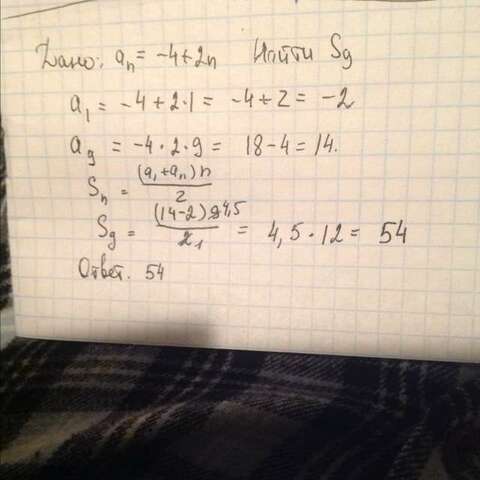 Дано: aₙ = -4+2n Найти S₉
a₁ = -4+2·1 = -4+2 = -2
a₉ = -4·2·9 = 18-4=14.
Sₙ = (a₁+aₙ)n / 2
S₉ = (14-2)9 4,5 / 2 1 = 4,5·12= 54
Ответ. 54